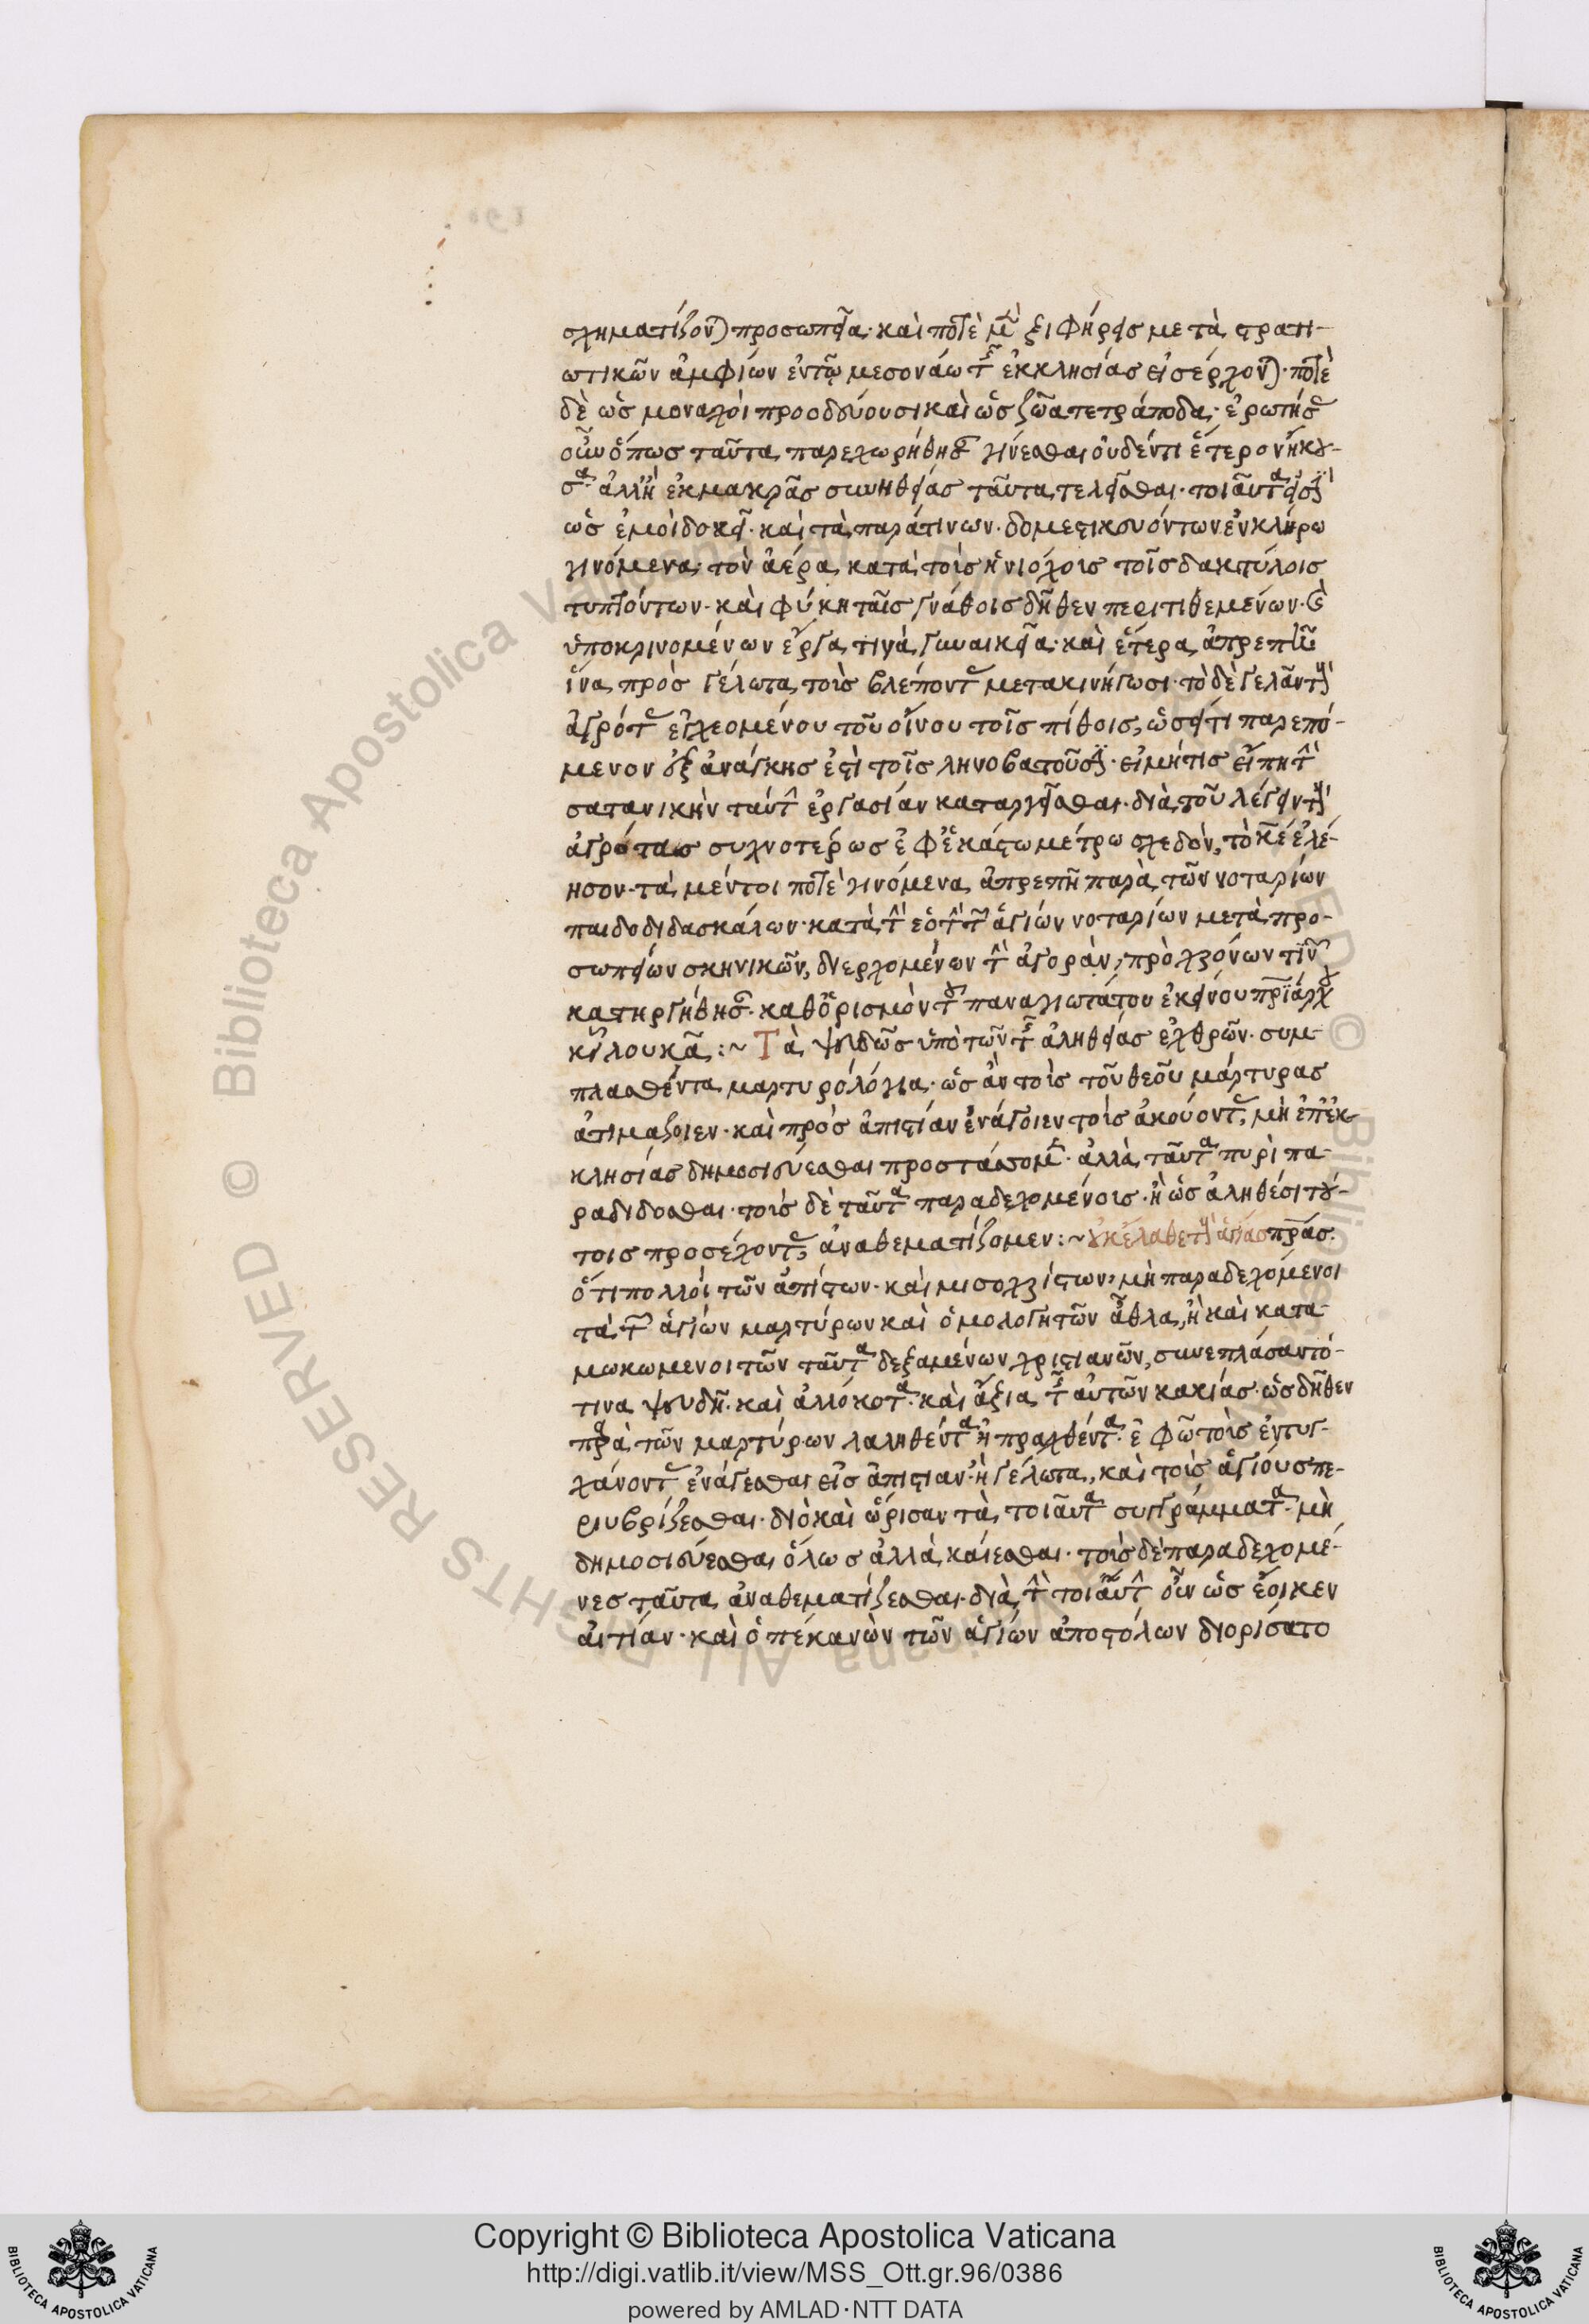 σχηματίζον) προσωπεῖα· καὶ ποτὲ μ(ὲν) ξιφήρεις μετὰ στρατι-
ωτικῶν ἀμφίων ἐν τῷ μεσονάω τῆς ἐκκλησίας εἰσέρχον)· ποτὲ
δὲ ὡς μοναχοὶ προοδεύουσι καὶ ὡς ζῶα τετράποδα· ἐρωτήσας
οὖν ὅπως ταῦτα παρεχωρήθησαν γίνεσθαι οὐδέν τι ἕτερον ἤκου-
σα· ἀλλ' ἢ ἐκ μακρᾶς συνηθείας ταῦτα τελεῖσθαι· τοιαῦτα εἰσὶ
ὡς ἐμοὶ δοκεῖ· καὶ τὰ παρά τινων δομεστικευόντων ἐν κλήρω
γινόμενα· τὸν ἀέρα κατὰ τοὺς ἡνιόχους τοῖς δακτύλοις
τυπτόντων· καὶ φύκη ταῖς γνάθοις δῆθεν περιτιθεμένων· καὶ
ὑποκρινομένων ἔργα τινὰ γυναικεῖα· καὶ ἕτερα ἀπρεπῆ
ἵνα πρὸς γέλωτα τοὺς βλέποντας μετακινήσωσι· τὸ δὲ γελᾶν τοὺς
ἀγρότας ἐγχεομένου τοῦ οἴνου τοῖς πίθοις, ὡσεί τι παρεπό-
μενον ἐξ ἀνάγκης ἐστὶ τοῖς ληνοβατοῦσιν· εἰ μή τις εἴπη τὴν
σατανικὴν ταύτην ἐργασίαν καταργεῖσθαι· διὰ τοῦ λέγειν τοὺς
ἀγρότας συχνοτέρως ἐφ' ἑκάστω μέτρω σχεδὸν, τὸ κε ἐλέ-
ησον· τὰ μέντοι ποτὲ γινόμενα ἀπρεπῆ παρὰ τῶν νοταρίων
παιδοδιδασκάλων· κατὰ τὴν ἑορτὴν τῶν ἁγίων νοταρίων μετὰ προ-
σωπείων σκηνικῶν, διερχομένων τὴν ἀγορὰν, πρὸ χρόνων τινῶν
κατηργήθησαν· καθ' ὁρισμὸν τοῦ παναγιωτάτου ἐκείνου πριάρχου
κυροῦ λουκᾶ :~ Τὰ ψευδῶς ὑπὸ τῶν τῆς ἀληθείας ἐχθρῶν· συμ-
πλασθέντα μαρτυρολόγια· ὡς ἂν τοὺς τοῦ θεοῦ μάρτυρας
ἀτιμάζοιεν· καὶ πρὸς ἀπιστίαν ἐνάγοιεν τοὺς ἀκούοντας, μὴ ἐπ' ἐκ-
κλησίας δημοσιεύεσθαι προστάσσομεν· ἀλλὰ ταῦτα πυρὶ πα-
ραδίδοσθαι· τοὺς δὲ ταῦτα παραδεχομένους· ἢ ὡς ἀληθέσι τού-
τοις προσέχοντας, ἀναθεματίζομεν :~ οὐκ ἔλαθε τοὺς ἁγίους πρας·
ὅτι πολλοὶ τῶν ἀπίστων· καὶ μισοχρίστων, μὴ παραδεχόμενοι
τὰ τῶν ἁγίων μαρτύρων καὶ ὁμολογητῶν ἆθλα, ἢ καὶ κατα-
μωκώμενοι τῶν ταῦτα δεξαμένων χριστιανῶν, συνεπλάσαντό
τινα ψευδῆ· καὶ ἀλλόκοτα· καὶ ἄξια τῆς αὐτῶν κακίας· ὡς δῆθεν
παρὰ τῶν μαρτύρων λαληθέντα ἢ πραχθέντα· ἐφ' ᾧ τοὺς ἐντυγ-
χάνοντας ἐνάγεσθαι εἰς ἀπιστίαν· ἢ γέλωτα, καὶ τοὺς ἁγίους πε-
ριυβρίζεσθαι· διὸ καὶ ὥρισαν τὰ τοιαῦτα συγγράμματα· μὴ
δημοσιεύεσθαι ὅλως ἀλλὰ καίεσθαι· τοὺς δὲ παραδεχομέ-
νους ταῦτα ἀναθεματίζεσθαι· διὰ τὴν τοιαύτην οὖν ὡς ἔοικεν
αἰτίαν· καὶ ὁ ξ κανὼν τῶν ἁγίων ἀποστόλων διορίσατο
Copyright © Biblioteca Apostolica Vaticana
http://digi.vatlib.it/view/MSS_Ott.gr.96/0386
powered by AMLAD·NTT DATA